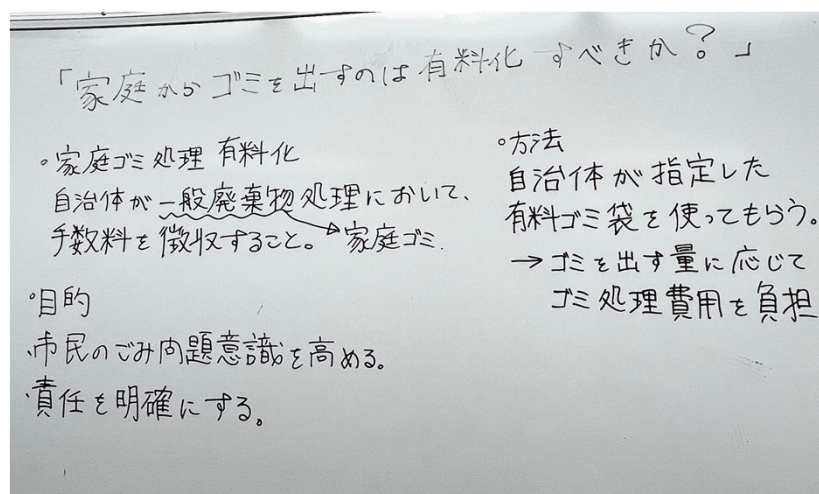 「家庭からゴミを出すのは有料化すべきか?」
◦家庭ゴミ処理 有料化
自治体が一般廃棄物処理において、
手数料を徴収すること。 家庭ゴミ.
◦目的
・市民のごみ問題意識を高める。
・責任を明確にする。
◦方法
自治体が指定した
有料ゴミ袋を使ってもらう。
→ゴミを出す量に応じて
ゴミ処理費用を負担